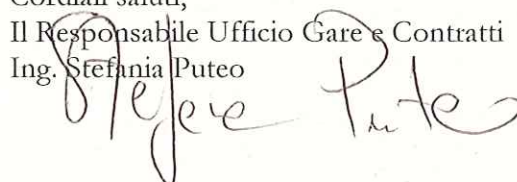 Cordiali saluti,
Il Responsabile Ufficio Gare e Contratti
Ing. Stefania Puteo
Stefania Puteo